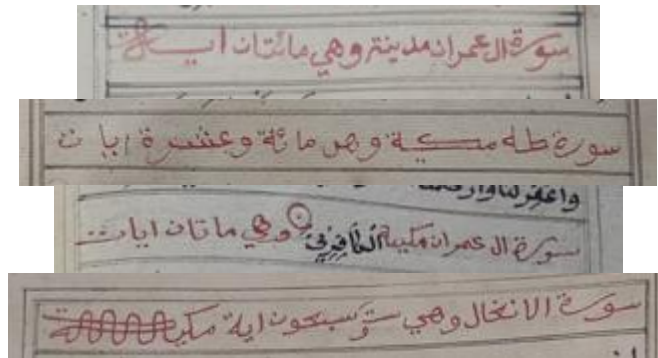 سورة ال عمران مدينة وهي مائتان ايــة
سورة طه مكية وهي مائة وعشرة ايات
واغفر لنا وارحمنا
سورة ال عمران مكية الكافرين وهي ماتان ايات
سورة الانحال وهي ستة وسبحون اية مكية